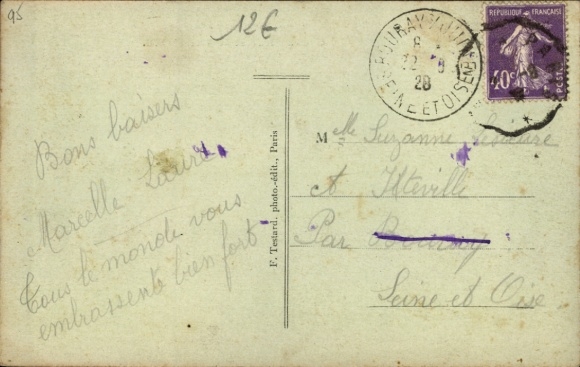 95
12€
BOURAY S/ JUINE
8
12 - 9
28
SEINE ET OISE
REPUBLIQUE FRANÇAISE
40c
POSTES
Bons baisers
Marcelle Laure
Tous le monde vous
embrassent bien fort
F. Testard, photo.-édit., Paris
Mlle Suzanne
A Itteville
Par Bouray
Seine et Oise